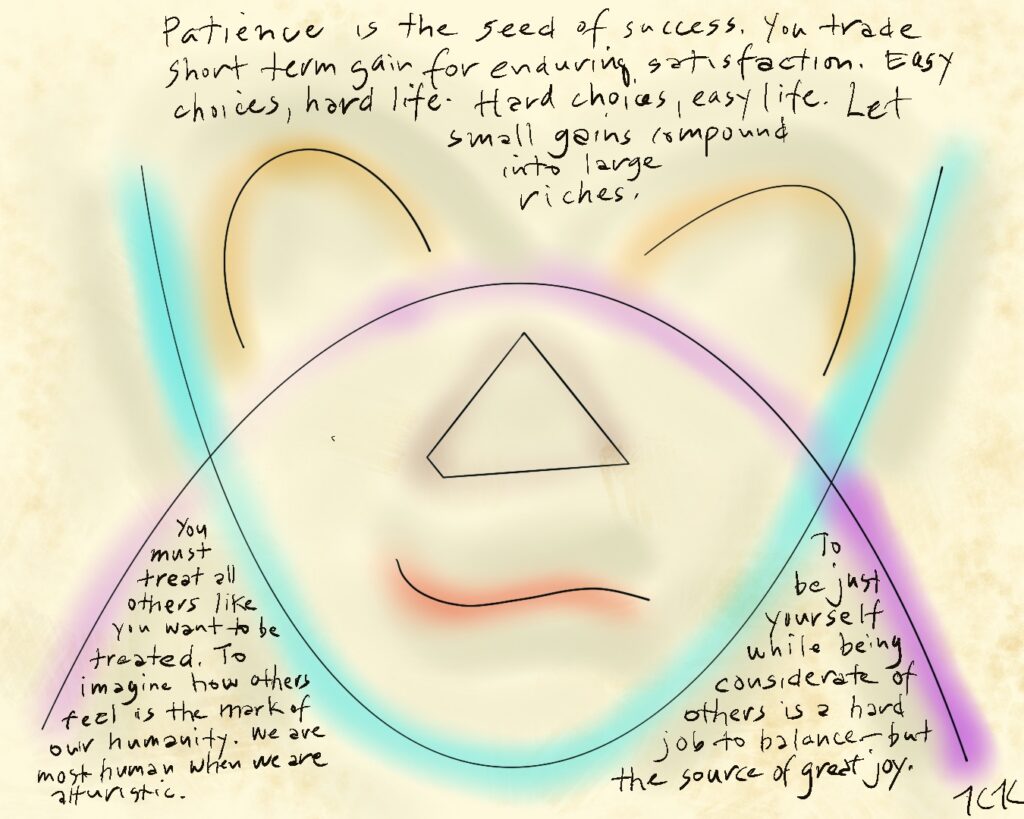 Patience is the seed of success. You trade
short term gain for enduring satisfaction. Easy
choices, hard life. Hard choices, easy life. Let
small gains compound
into large
riches.
You
must
treat all
others like
you want to be
treated. To
imagine how others
feel is the mark of
our humanity. We are
most human when we are
alturistic.
To
be just
yourself
while being
considerate of
others is a hard
job to balance—but
the source of great joy.